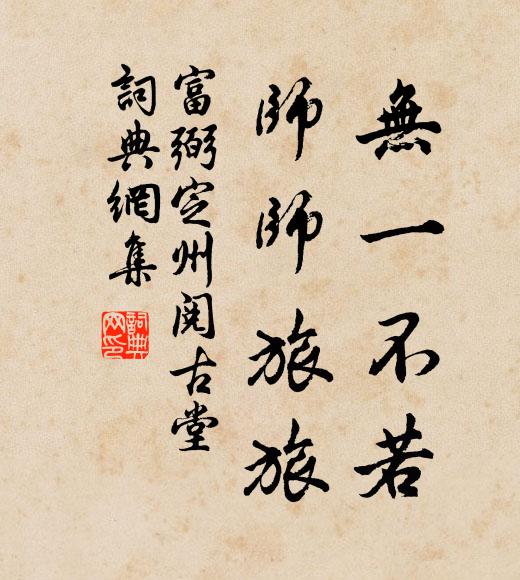 無一不若
師師旅旅
富弼定州閱古堂
詞典網集
詞典
網印